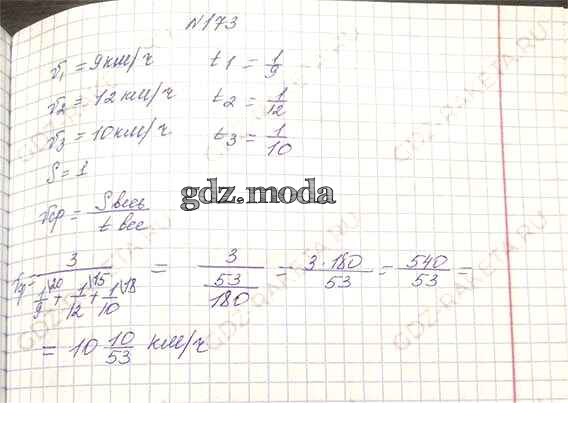 №173
v₁ = 9км/ч t1 = 1/9
v₂ = 12км/ч t2 = 1/12
v₃ = 10км/ч t3 = 1/10
S = 1
gdz.moda
vср = Sвесь / t все
vср = 3 / (1/9\20 + 1/12\15 + 1/10\18) = 3 / (53/180) = 3·180/53 = 540/53 =
= 10 10/53 км/ч
GDZ-RAKETA.RU
GDZ-RAKETA.RU
GDZ-RAKETA.RU
GDZ-RAKETA.RU